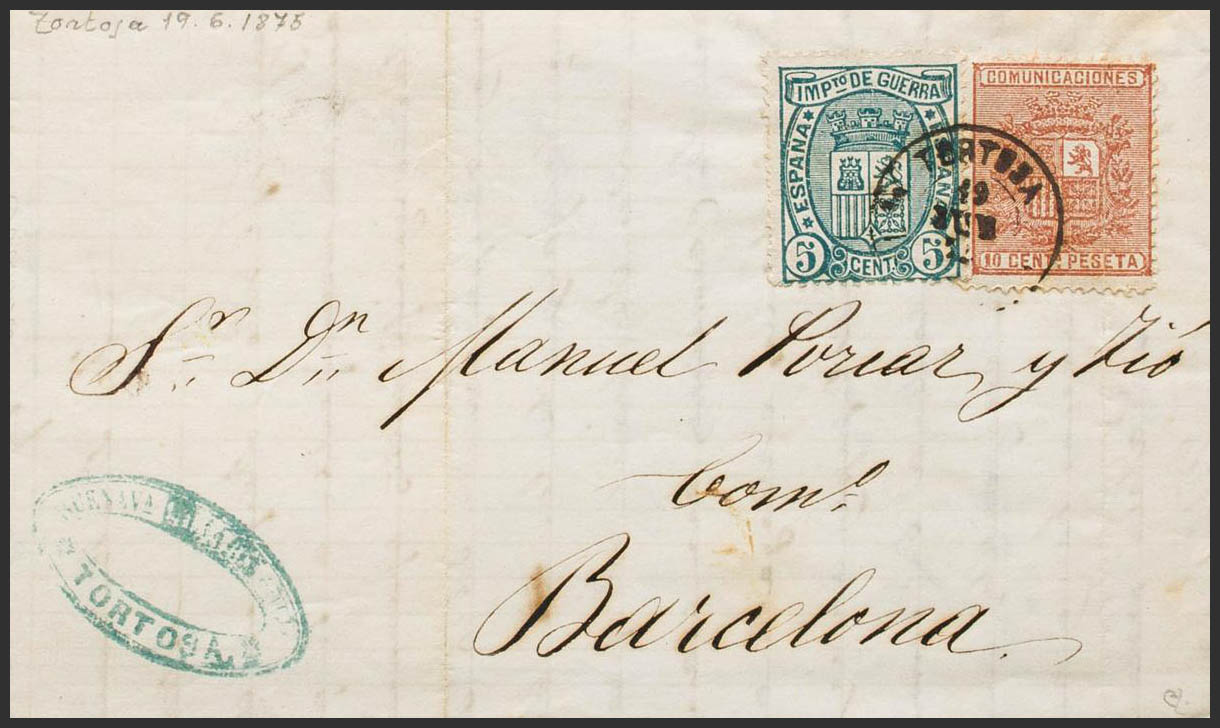 Tortosa 19.6.1875
IMPTO DE GUERRA
ESPAÑA
ESPAÑA
5 CENT. 5
COMUNICACIONES
10 CENT. PESETA
TORTOSA
19
JUN
Sr. Dn. Manuel Porcar y Tió
Como.
Barcelona
BUENAVA
TORTOSA.